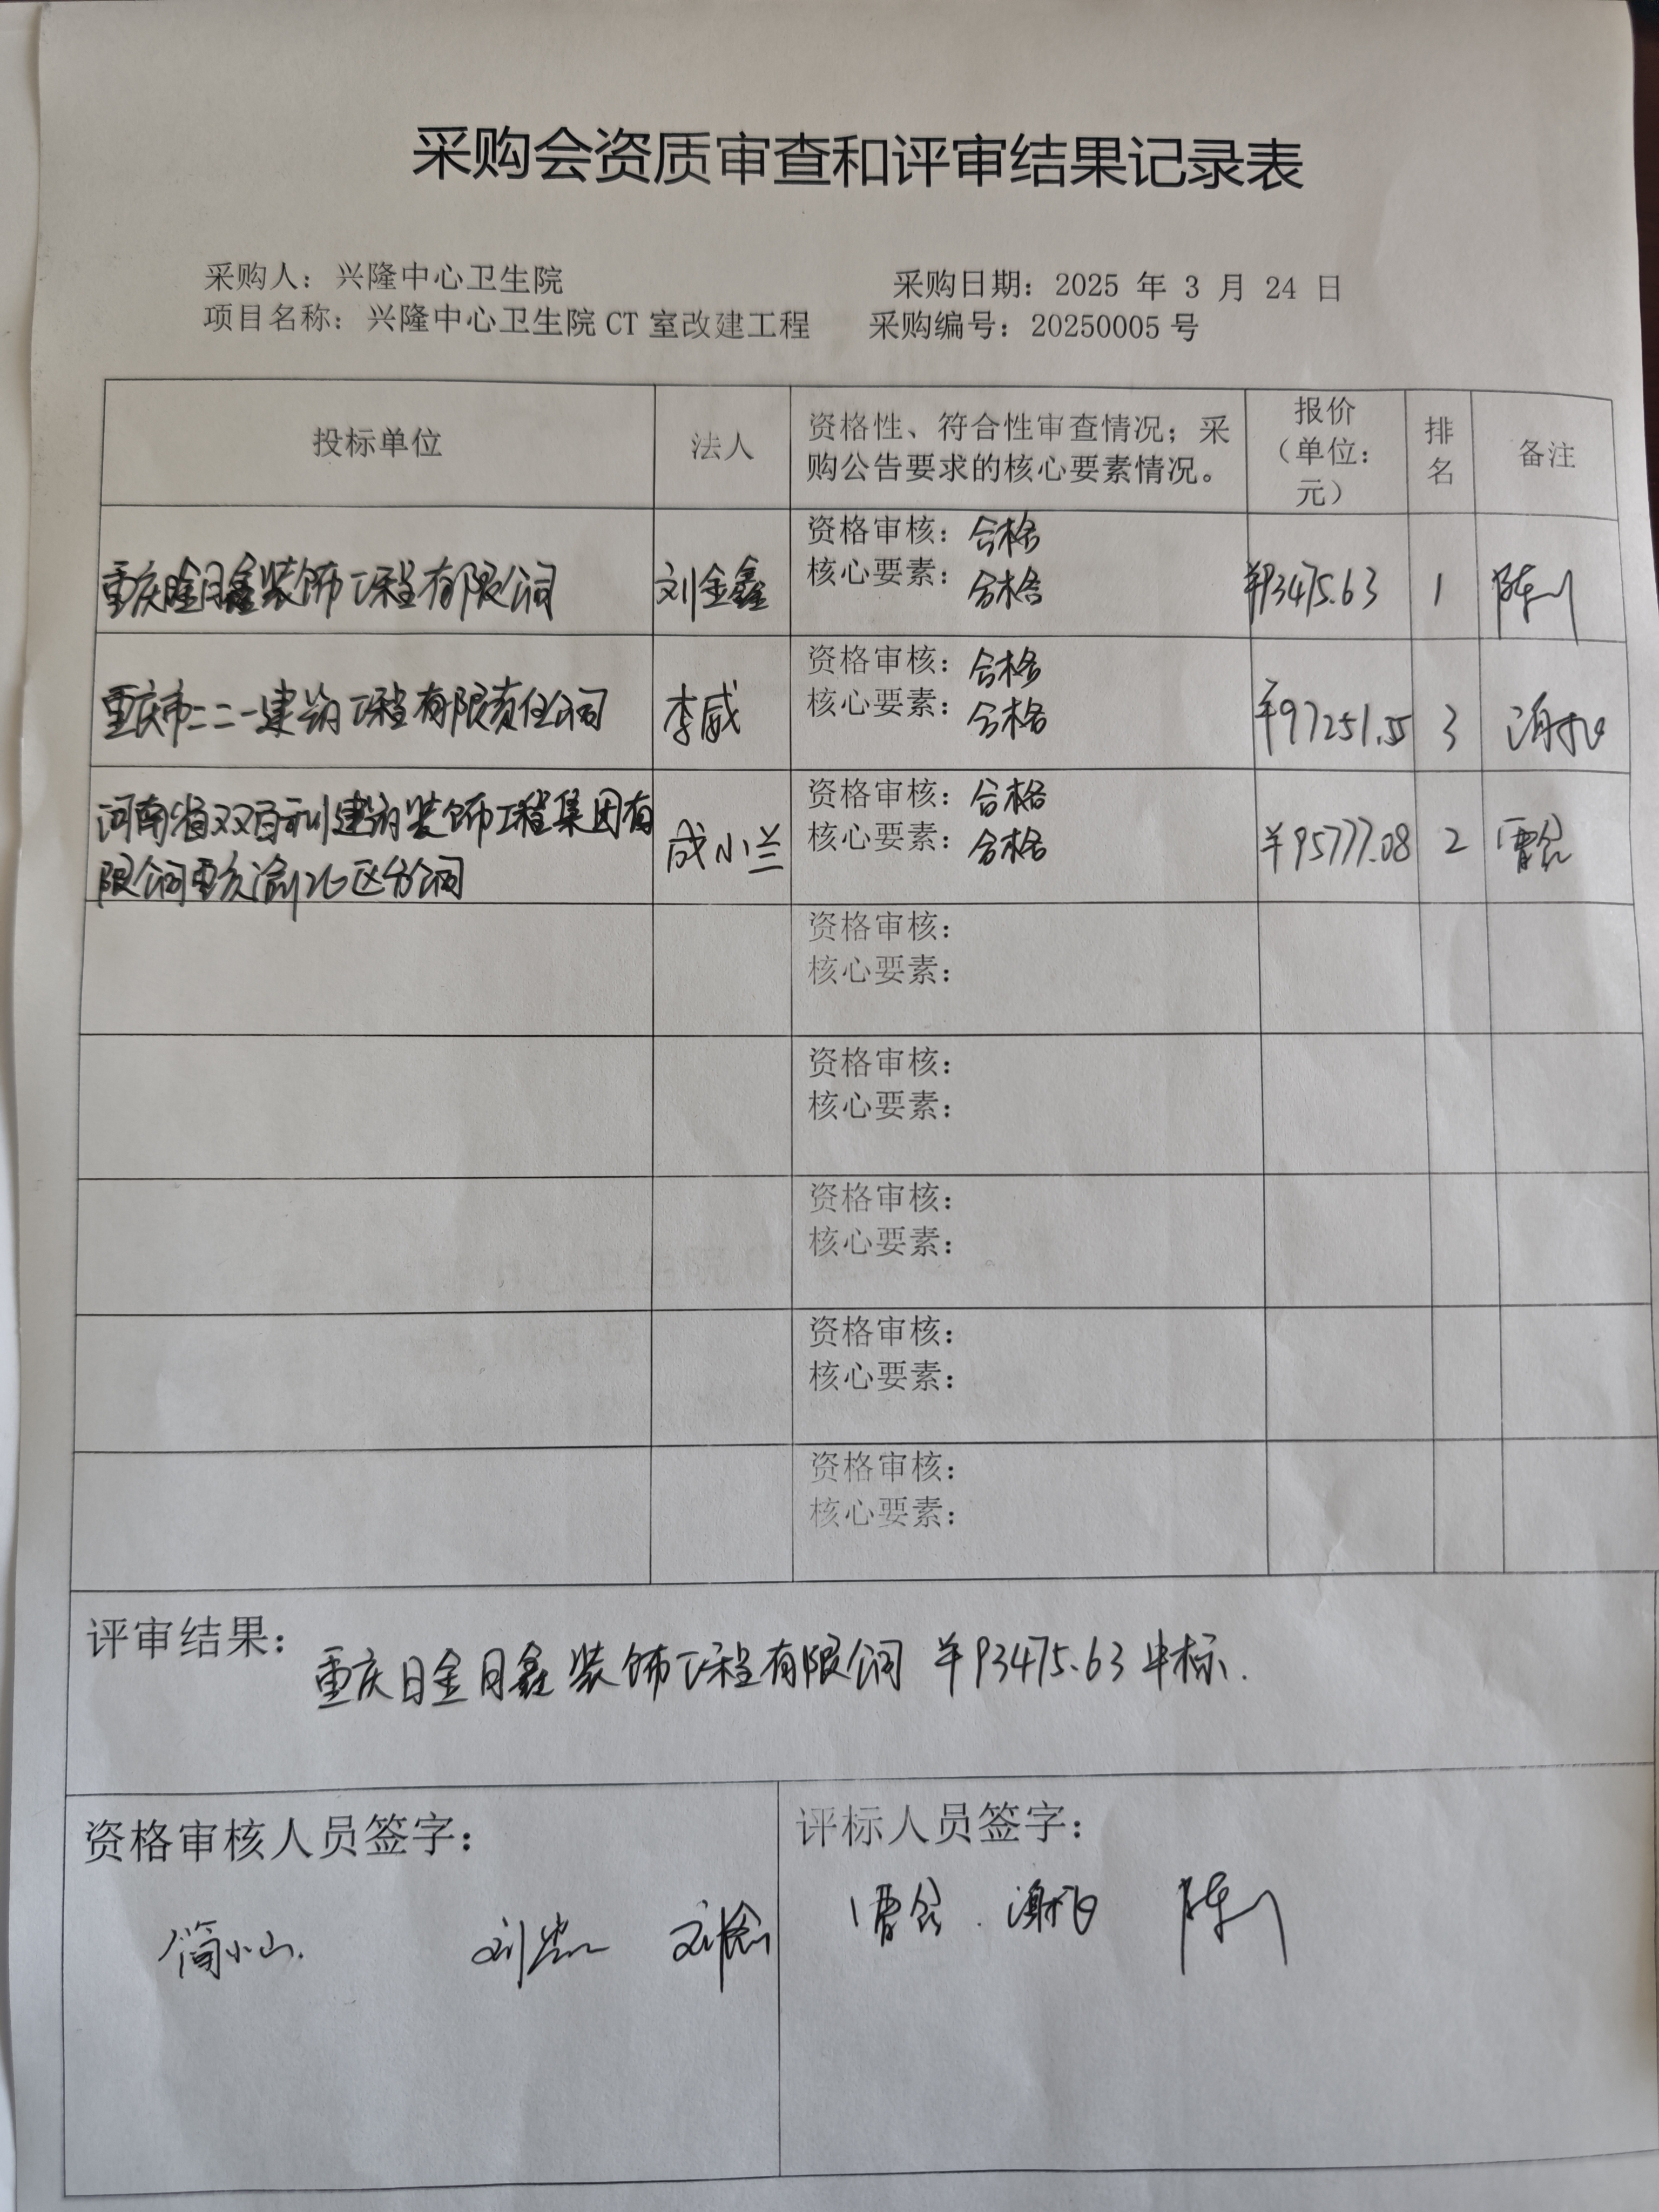 采购会资质审查和评审结果记录表
采购人：兴隆中心卫生院 采购日期：2025 年 3 月 24 日
项目名称：兴隆中心卫生院 CT 室改建工程 采购编号：20250005 号
投标单位 法人 资格性、符合性审查情况；采购公告要求的核心要素情况。 报价（单位：元） 排名 备注
重庆日金月鑫装饰工程有限公司 刘金鑫 ¥93475.63 1
资格审核：合格
核心要素：合格
重庆市二二一建筑工程有限责任公司 李威 ¥97251.55 3
资格审核：合格
核心要素：合格
河南省双百利建筑装饰工程集团有
限公司重庆渝北区分公司 成小兰 ¥95777.08 2
资格审核：合格
核心要素：合格
资格审核：
核心要素：
资格审核：
核心要素：
资格审核：
核心要素：
资格审核：
核心要素：
资格审核：
核心要素：
评审结果：重庆日金月鑫装饰工程有限公司 ¥93475.63 中标.
资格审核人员签字： 评标人员签字：
简小山.